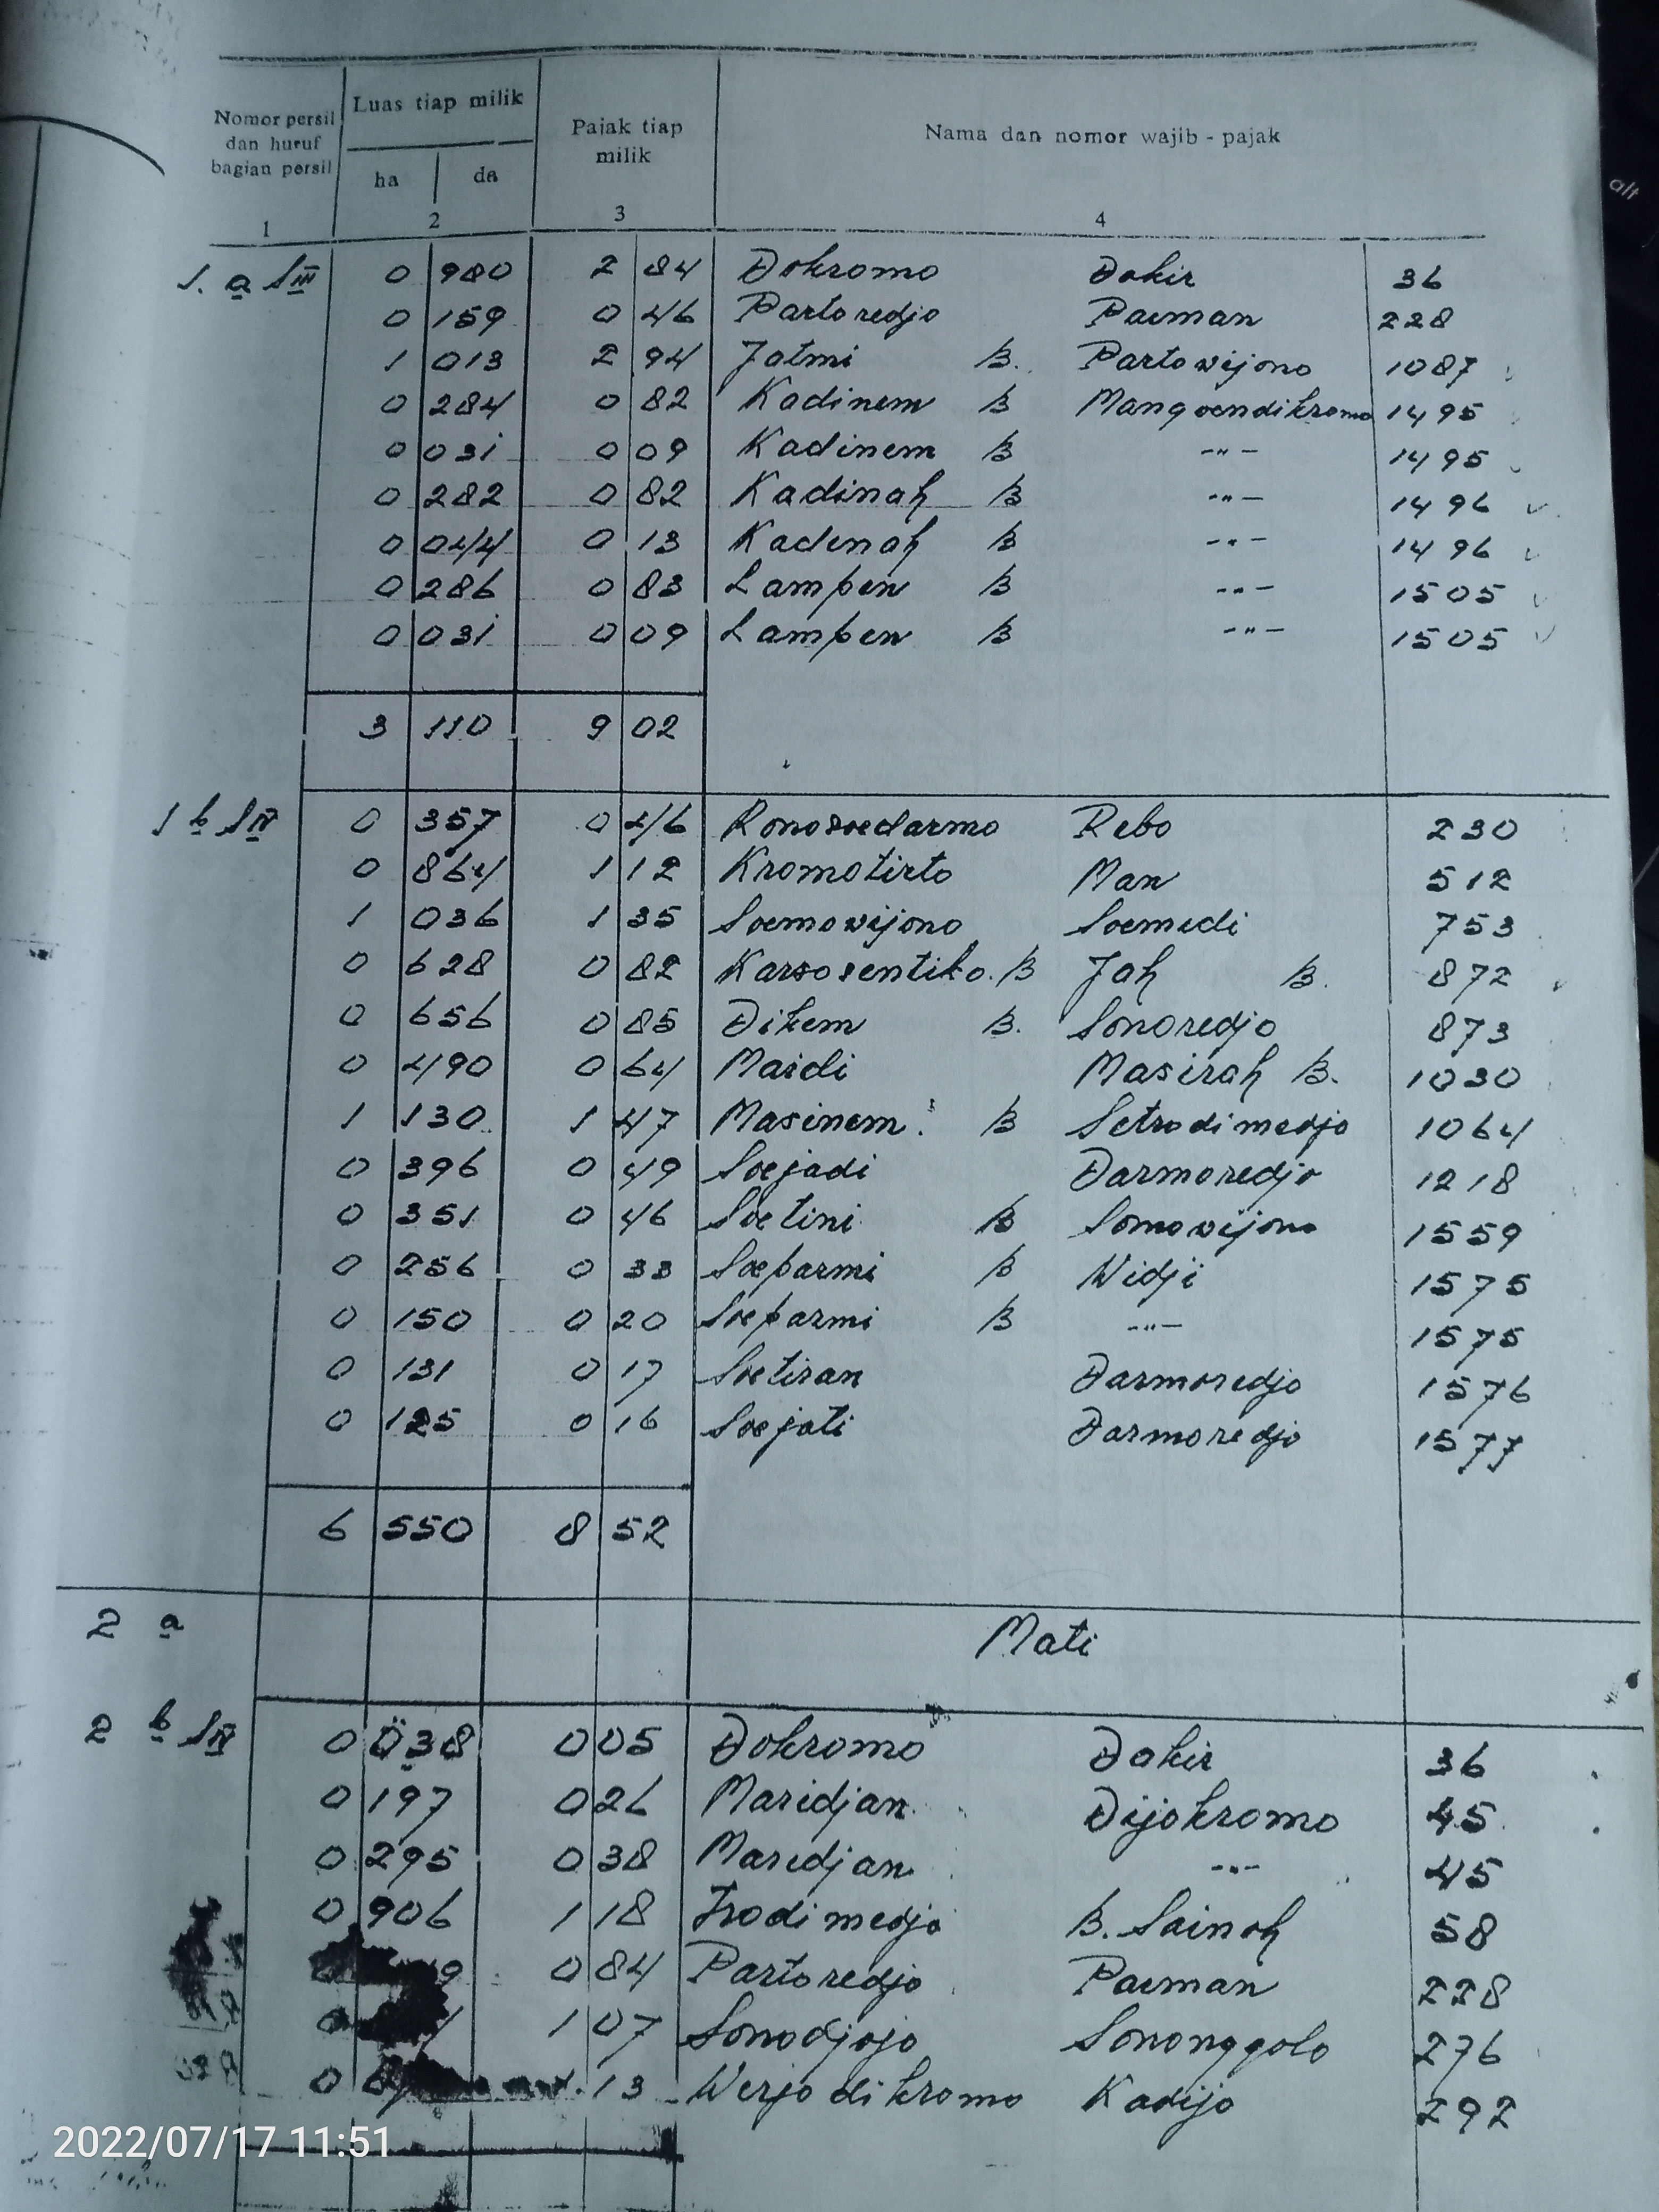 Nomor persil dan huruf bagian persil | Luas tiap milik | Pajak tiap milik | Nama dan nomor wajib - pajak
ha | da
1 | 2 | 3 | 4
1. a S III 0 980 2 84 Dokromo Dakir 36
0 159 0 46 Partoredjo Paiman 228
1 013 2 94 Jatmi B. Partowijono 1087
0 284 0 82 Kadinem B Mangoendikromo 1495
0 031 0 09 Kadinem B -"- 1495
0 282 0 82 Kadinah B -"- 1496
0 044 0 13 Kadinah B -"- 1496
0 286 0 83 Lampen B -"- 1505
0 031 0 09 Lampen B -"- 1505
3 110 9 02
1 b S IV 0 357 0 46 Ronosoedarmo Rebo 230
0 864 1 12 Kromotirto Man 512
1 036 1 35 Soemowijono Soemedi 753
0 628 0 82 Karsosentiko. B Jah B. 872
0 656 0 85 Dikem B. Sonoredjo 873
0 490 0 64 Mardi Masirah B. 1030
1 130 1 47 Masinem B Setrodimedjo 1064
0 396 0 49 Soejadi Darmoredjo 1218
0 351 0 46 Soetini B Somowijono 1559
0 256 0 33 Soeparmi B Widji 1575
0 150 0 20 Soeparmi B -"- 1575
0 131 0 17 Soetiran Darmoredjo 1576
0 125 0 16 Soejati Darmoredjo 1577
6 550 8 52
2 a Mati
2 b S IV 0 038 0 05 Dokromo Dakir 36
0 197 0 26 Maridjan Dijokromo 45
0 295 0 38 Maridjan -"- 45
0 906 1 18 Trodimedjo B. Sainah 58
9 0 84 Partoredjo Paiman 228
1 07 Sonodjojo Sononggolo 276
0 13 Werjodikromo Kadijo 292
2022/07/17 11:51
alt